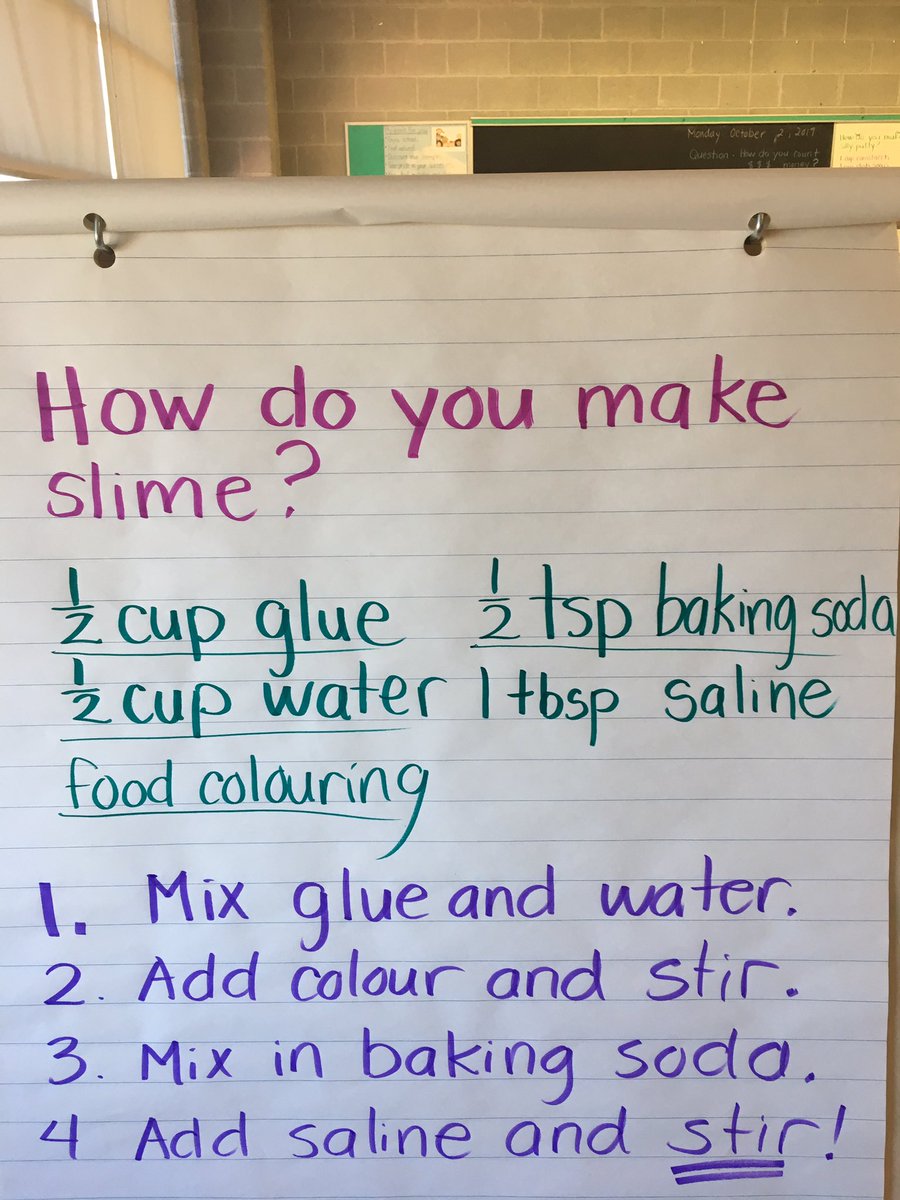 Monday October 2, 2017
Question - How do you count
$ $ $ money?
How do you make
silly putty?
How do you make
slime?
1/2 cup glue 1/2 tsp baking soda
1/2 cup water 1 tbsp saline
food colouring
1. Mix glue and water.
2. Add colour and stir.
3. Mix in baking soda.
4 Add saline and stir!